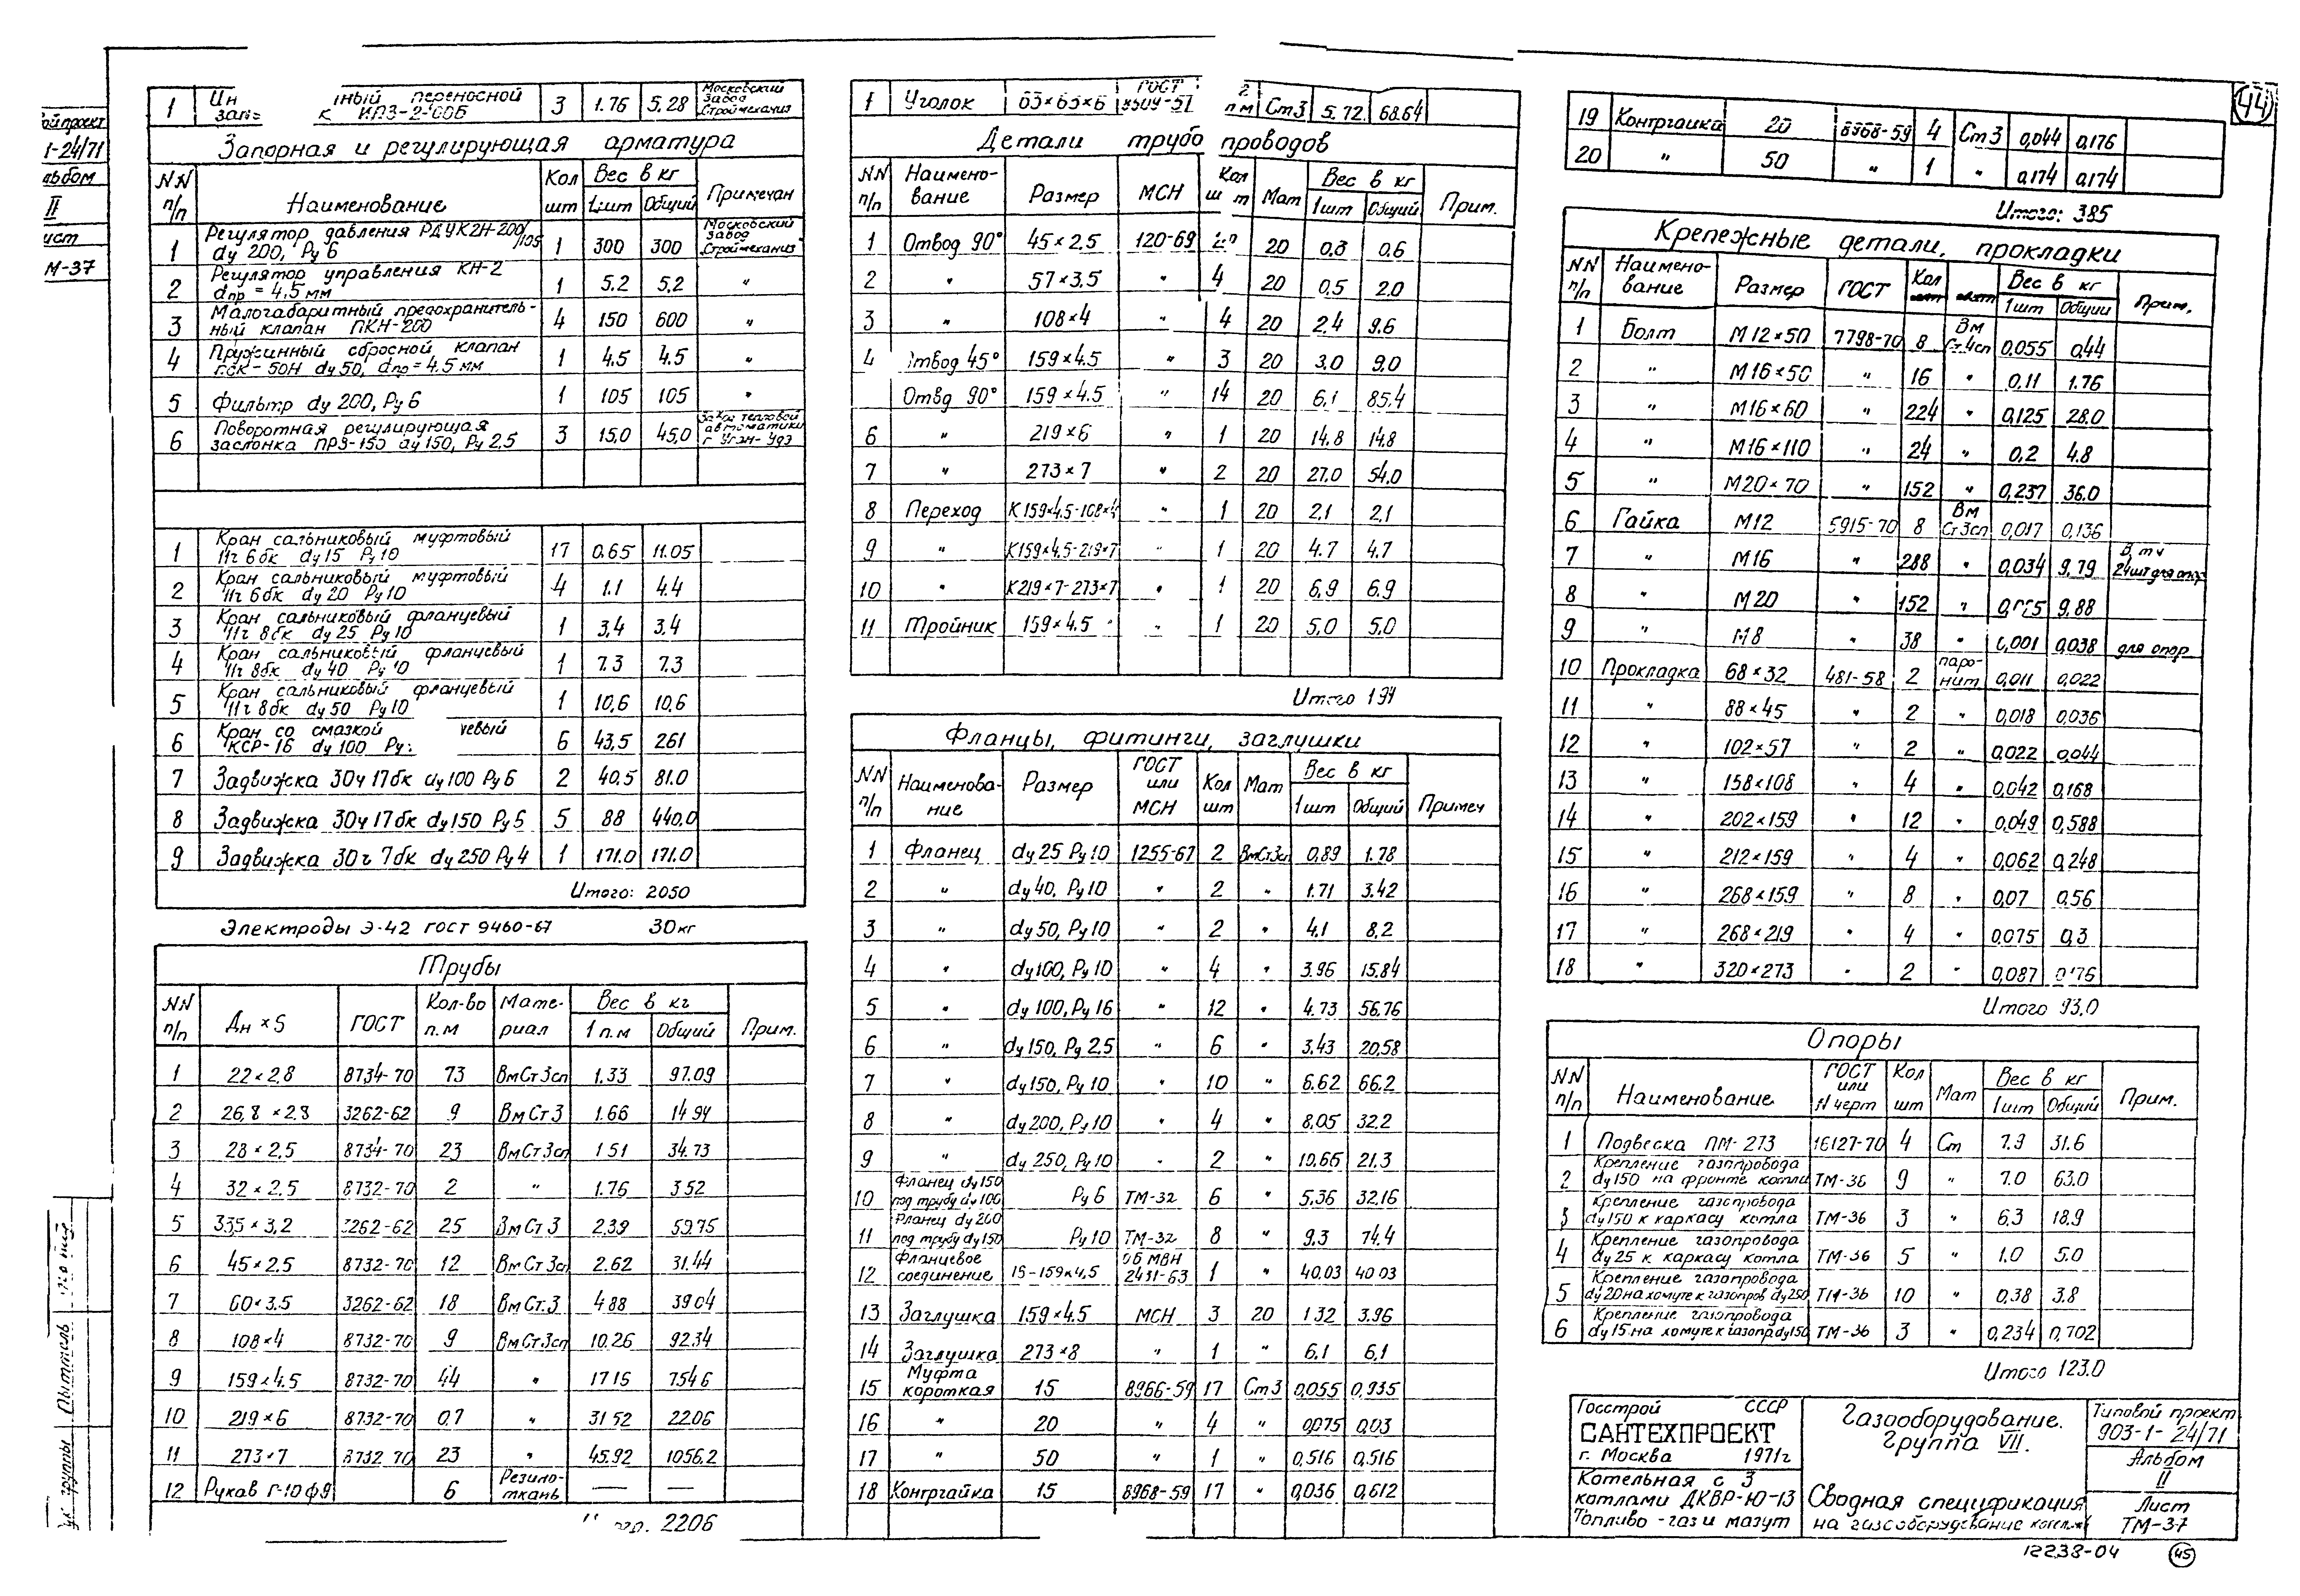 44
ой проект
1-24/71
льбом
II
ист
М-37
1 Ин ный переносной 3 1.76 5,28 Московский завод Строймеханиз
запа- к ИПЗ-2-00Б
Запорная и регулирующая арматура
NN п/п Наименование Кол шт Вес в кг 1шт Общий Примечан
1 Регулятор давления РДУК2Н-200/105 dу 200, Ру 6 1 300 300 Московский завод Строймеханиз
2 Регулятор управления КН-2 dпр = 4,5 мм 1 5.2 5,2 "
3 Малогабаритный предохранитель-ный клапан ПКН-200 4 150 600 "
4 Пружинный сбросной клапан ПСК-50Н dу 50, dпр = 4.5 мм 1 4.5 4.5 "
5 Фильтр dу 200, Ру 6 1 105 105 "
6 Поворотная регулирующая заслонка ПРЗ-150 dу 150, Ру 2,5 3 15,0 45,0 тепловой автоматики г Улан-Удэ
1 Кран сальниковый муфтовый 11ч 6бк dу 15 Ру 10 17 0.65 11.05
2 Кран сальниковый муфтовый 11ч 6бк dу 20 Ру 10 4 1.1 4.4
3 Кран сальниковый фланцевый 11ч 8бк dу 25 Ру 10 1 3,4 3.4
4 Кран сальниковый фланцевый 11ч 8бк dу 40 Ру 10 1 7.3 7.3
5 Кран сальниковый фланцевый 11ч 8бк dу 50 Ру 10 1 10,6 10,6
6 Кран со смазкой цевый КСР-16 dу 100 Ру 6 43,5 261
7 Задвижка 30ч 17бк dу 100 Ру 6 2 40.5 81.0
8 Задвижка 30ч 17бк dу 150 Ру 6 5 88 440.0
9 Задвижка 30ч 7бк dу 250 Ру 4 1 171.0 171.0
Итого: 2050
Электроды Э-42 ГОСТ 9460-67 30 кг
Трубы
NN п/п Дн × S ГОСТ Кол-во п.м Мате-риал Вес в кг 1 п.м Общий Прим.
1 22 × 2,8 8734-70 73 ВмСт 3сп 1.33 97.09
2 26,8 × 2,8 3262-62 9 ВмСт 3 1.66 14 94
3 28 × 2,5 8734-70 23 ВмСт 3сп 1 51 34.73
4 32 × 2.5 8732-70 2 " 1.76 3 52
5 33,5 × 3,2 3262-62 25 ВмСт 3 2.39 59.75
6 45 × 2.5 8732-70 12 ВмСт 3сп 2.62 31.44
7 60 × 3.5 3262-62 18 ВмСт.3 4 88 39 04
8 108 × 4 8732-70 9 ВмСт 3сп 10.26 92.34
9 159 × 4.5 8732-70 44 " 17 15 754 6
10 219 × 6 8732-70 0,7 " 31 52 22.06
11 273 × 7 8732 70 23 " 45.92 1056.2
12 Рукав Г-10 ф9 6 Резино-ткань — —
2206
1 Уголок 63×63×6 ГОСТ 8509-57 п м Ст 3 5.72 68.64
Детали трубопроводов
NN п/п Наимено-вание Размер МСН Кол шт Мат Вес в кг 1 шт Общий Прим.
1 Отвод 90° 45 × 2,5 120-69 20 0,3 0.6
2 " 57 × 3,5 " 4 20 0,5 2.0
3 " 108 × 4 " 4 20 2.4 9.6
4 Отвод 45° 159 × 4.5 " 3 20 3.0 9,0
Отвд 90° 159 × 4.5 " 14 20 6,1 85.4
6 " 219 × 6 " 1 20 14.8 14.8
7 " 273 × 7 " 2 20 27.0 54.0
8 Переход К 159×4.5-108×4 " 1 20 2,1 2,1
9 " К159×4.5-219×7 " 1 20 4.7 4.7
10 " К219×7-273×7 " 1 20 6,9 6.9
11 Тройник 159 × 4.5 " 1 20 5,0 5,0
Итого 194
Фланцы, фитинги, заглушки
NN п/п Наименова-ние Размер ГОСТ или МСН Кол шт Мат Вес в кг 1 шт Общий Примеч
1 Фланец dу 25 Ру 10 1255-67 2 ВмСт 3сп 0,89 1.78
2 " dу 40, Ру 10 " 2 " 1.71 3.42
3 " dу 50, Ру 10 " 2 " 4.1 8,2
4 " dу 100, Ру 10 " 4 " 3.96 15.84
5 " dу 100, Ру 16 " 12 " 4.73 56.76
6 " dу 150, Ру 2.5 " 6 " 3.43 20,58
7 " dу 150, Ру 10 " 10 " 6.62 66.2
8 " dу 200, Ру 10 " 4 " 8,05 32.2
9 " dу 250, Ру 10 - 2 " 10.65 21.3
10 Фланец dу 150 под трубу dу 100 Ру 6 ТМ-32 6 " 5.36 32.16
11 Фланец dу 200 под трубу dу 150 Ру 10 ТМ-32 8 " 9.3 74.4
12 Фланцевое соединение 16-159×4,5 МВН 2431-63 1 " 40.03 40 03
13 Заглушка 159 × 4.5 МСН 3 20 1 32 3.96
14 Заглушка 273 × 8 " 1 " 6.1 6,1
15 Муфта короткая 15 8966-59 17 Ст 3 0,055 0,935
16 " 20 " 4 " 0,075 0,03
17 " 50 " 1 " 0,516 0,516
18 Контргайка 15 8968-59 17 " 0,036 0,612
19 Контргайка 20 8968-59 4 Ст 3 0,044 0,176
20 " 50 " 1 " 0,174 0,174
Итого: 385
Крепежные детали, прокладки
NN п/п Наимено-вание Размер ГОСТ Кол Вес в кг 1 шт Общий Прим.
1 Болт М 12×50 7798-70 8 Вм Ст.4сп 0.055 0,44
2 " М16×50 " 16 " 0,11 1.76
3 " М16×60 " 224 " 0,125 28.0
4 " М16×110 " 24 " 0,2 4.8
5 " М20×70 " 152 " 0,237 36.0
6 Гайка М12 5915-70 8 Вм Ст 3сп 0,017 0,136
7 " М16 " 288 " 0,034 9.79 В т ч 24шт для опор
8 " М 20 " 152 " 9.88
9 " М8 " 38 " 0,001 0,038 для опор
10 Прокладка 68 × 32 481-58 2 паро-нит 0,011 0,022
11 " 88 × 45 " 2 " 0,018 0,036
12 " 102 × 57 " 2 " 0,022 0,044
13 " 158×108 " 4 " 0,042 0,168
14 " 202 × 159 " 12 " 0,049 0,588
15 " 212 × 159 " 4 " 0,062 0,248
16 " 268×159 " 8 " 0,07 0,56
17 " 268×219 " 4 " 0,075 0,3
18 " 320×273 - 2 - 0,087
Итого 93.0
Опоры
NN п/п Наименование ГОСТ или N черт Кол шт Мат Вес в кг 1 шт Общий Прим.
1 Подвеска ПМ-273 16127-70 4 Ст 7.9 31.6
2 Крепление газопровода dу 150 на фронте котла ТМ-36 9 " 7.0 63.0
3 Крепление газопровода dу 150 к каркасу котла ТМ-36 3 " 6,3 18.9
4 Крепление газопровода dу 25 к каркасу котла ТМ-36 5 " 1.0 5.0
5 Крепление газопровода dу 20 на хомуте к газопров dу 250 ТМ-36 10 " 0,38 3.8
6 Крепление газопровода dу 15 на хомуте к газопр. dу 150 ТМ-36 3 " 0,234 0,702
Итого 123.0
Госстрой СССР
САНТЕХПРОЕКТ
г. Москва 1971г
Котельная с 3
котлами ДКВР-10-13
Топливо - газ и мазут
Газооборудование.
Группа VII.
Сводная спецификация
на газооборудование котельн
Типовой проект
903-1-24/71
Альбом
II
Лист
ТМ-37
12238-04
45
группы